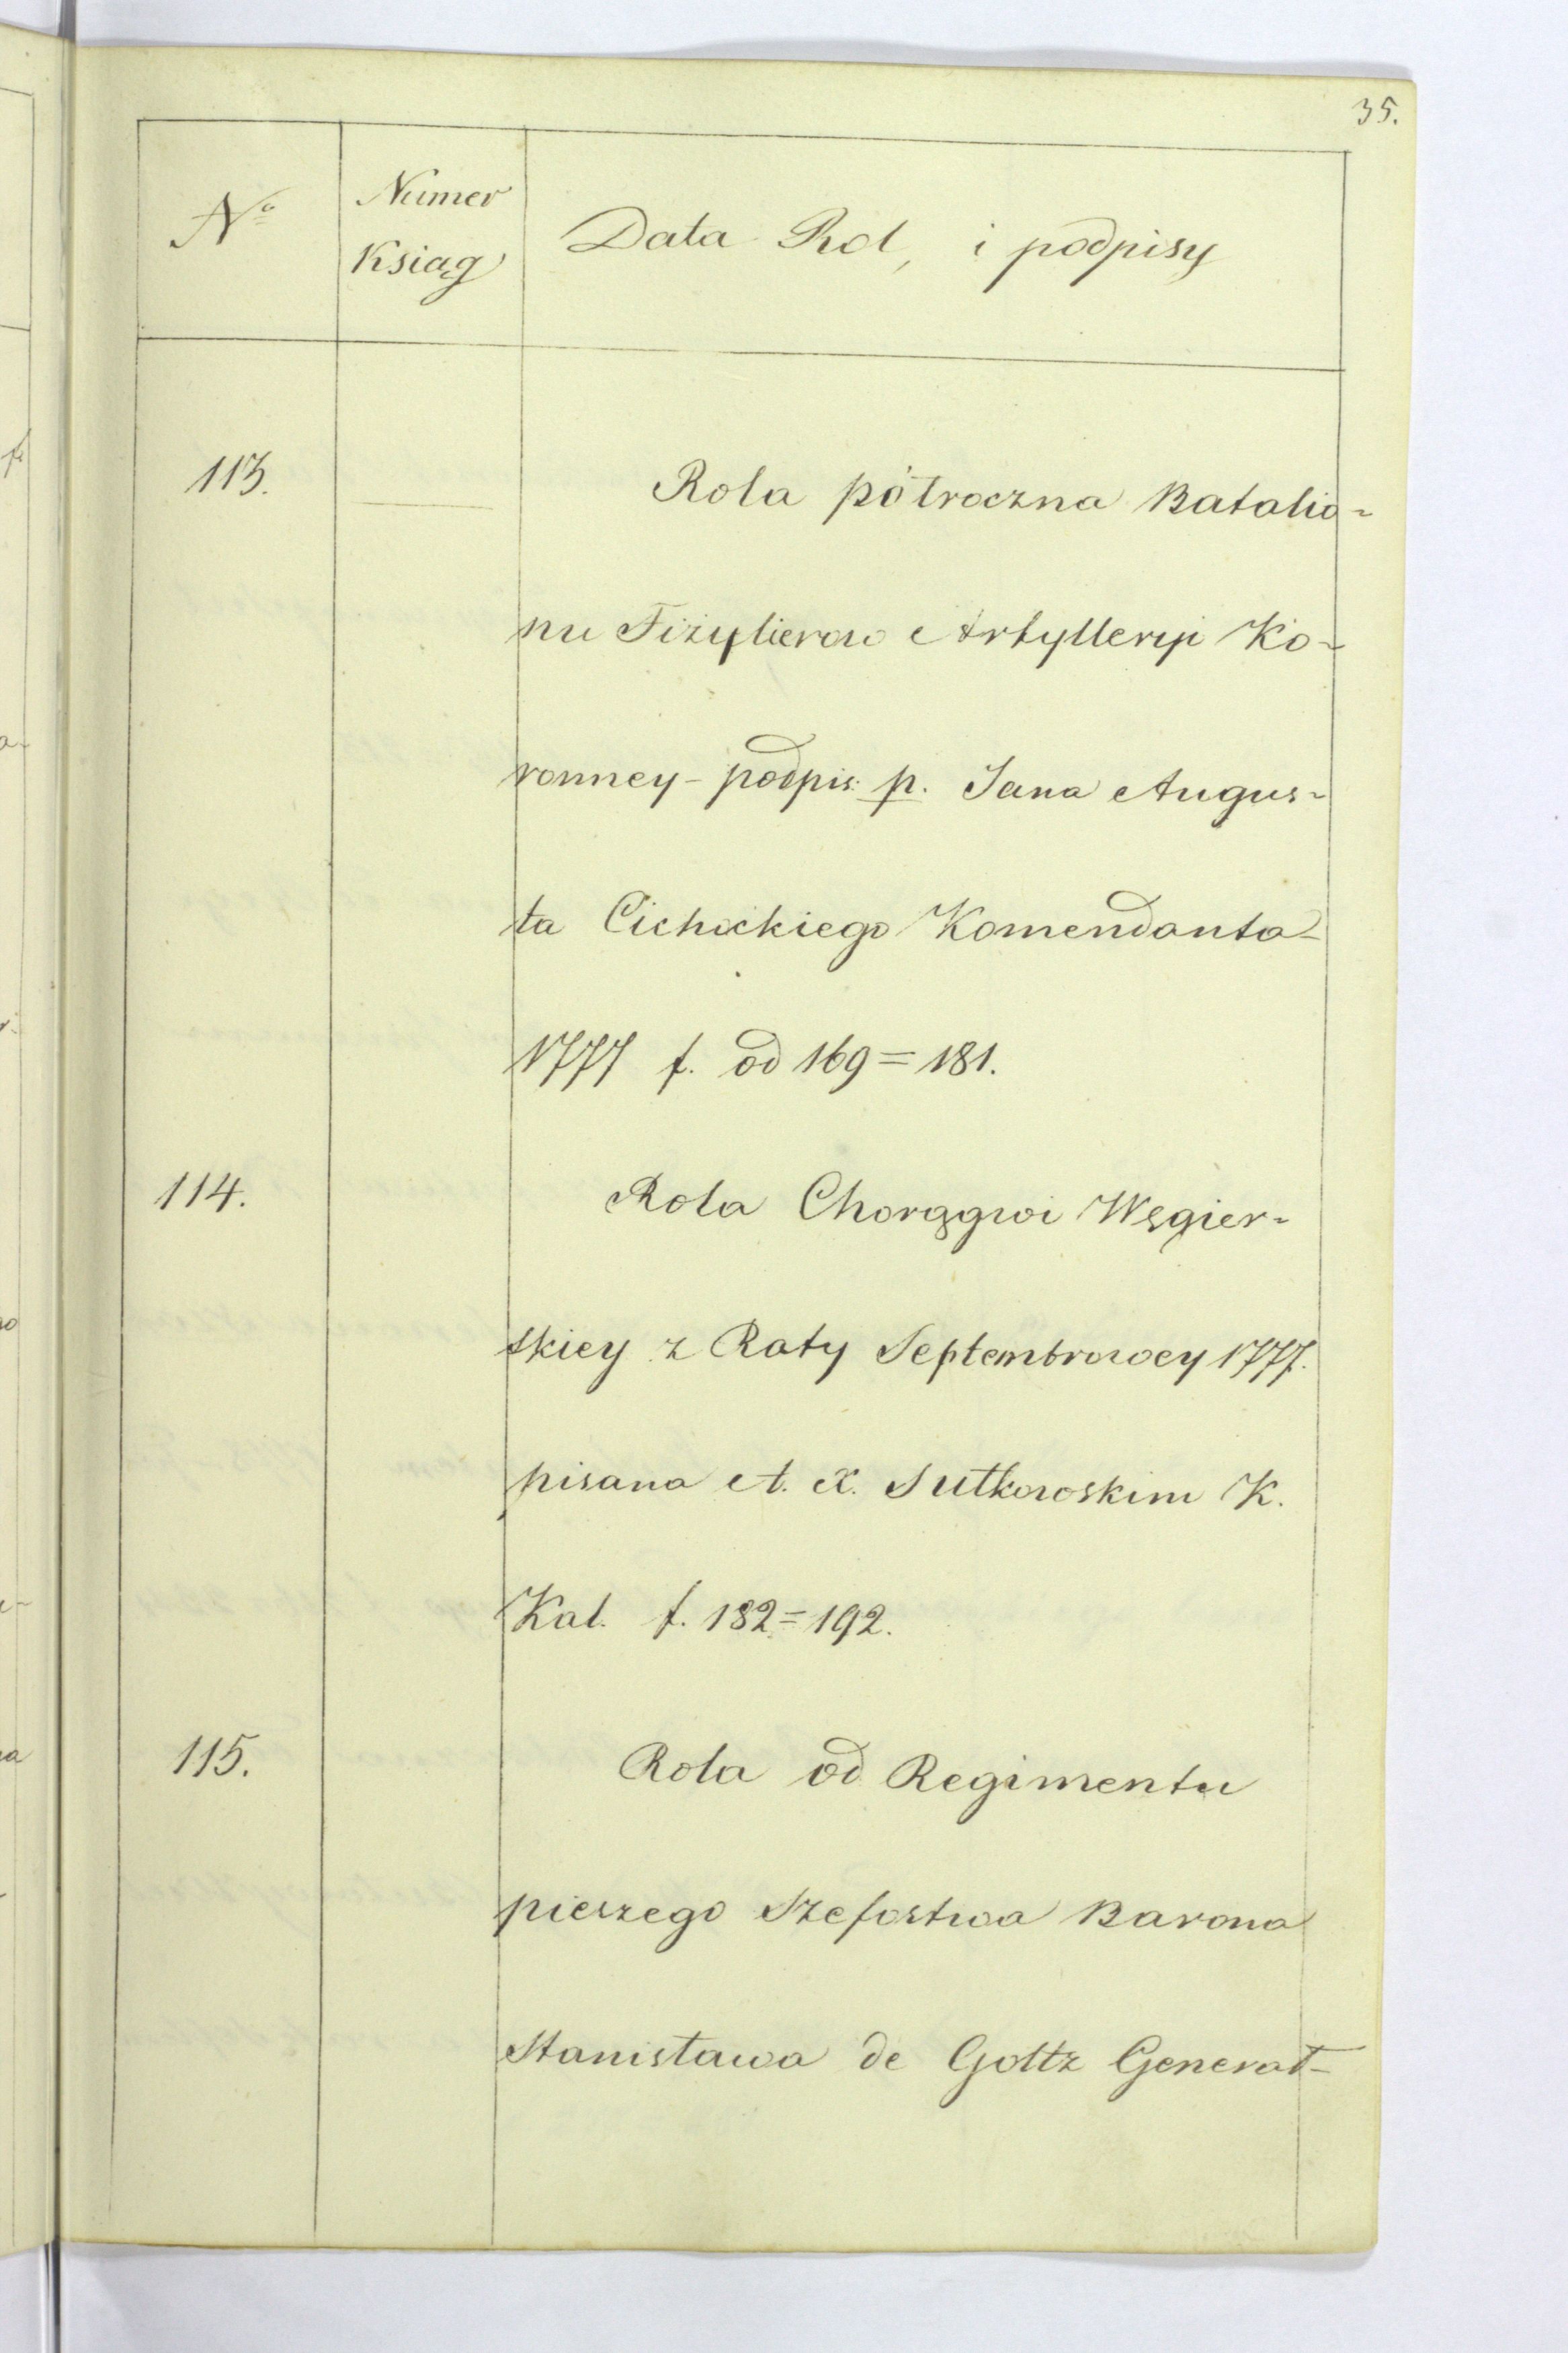 35.
No Numer Ksiąg Data Rol, i podpisy
113. Rola półroczna Batalio-
nu Fizylierow Artylleryi Ko-
ronney - podpis: p. Jana Augus-
ta Cichockiego Komendanta
1777 f. od 169 = 181.
114. Rola Chorągwi Węgier-
skiey z Raty Septembrowey 1777.
pisana A. X. Sułkowskim K.
Kal. f. 182 = 192.
115. Rola od Regimentu
pieszego Szefostwa Barona
Stanisława de Goltz Generał-